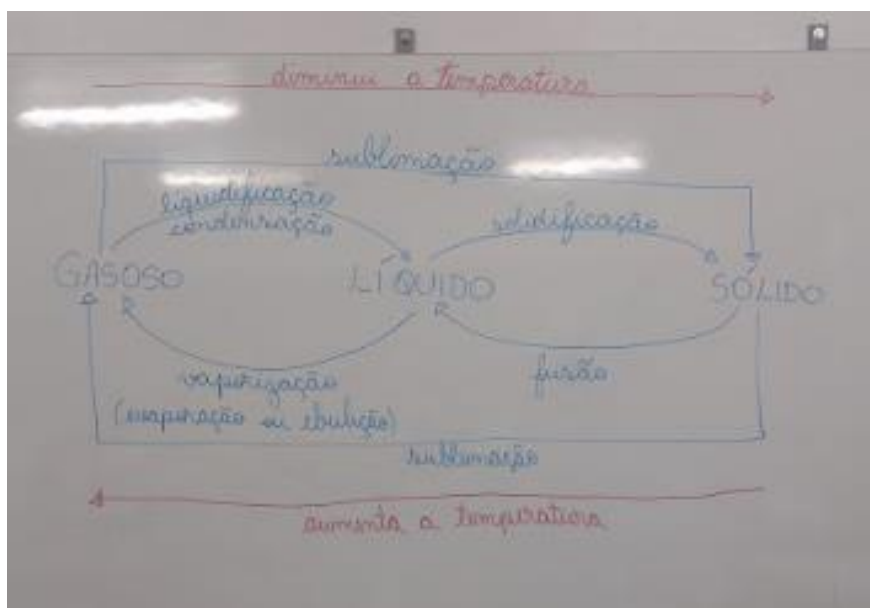 diminui a temperatura
sublimação
liquidificação
condensação
solidificação
GASOSO
LÍQUIDO
SÓLIDO
vaporização
(evaporação ou ebulição)
fusão
sublimação
aumenta a temperatura